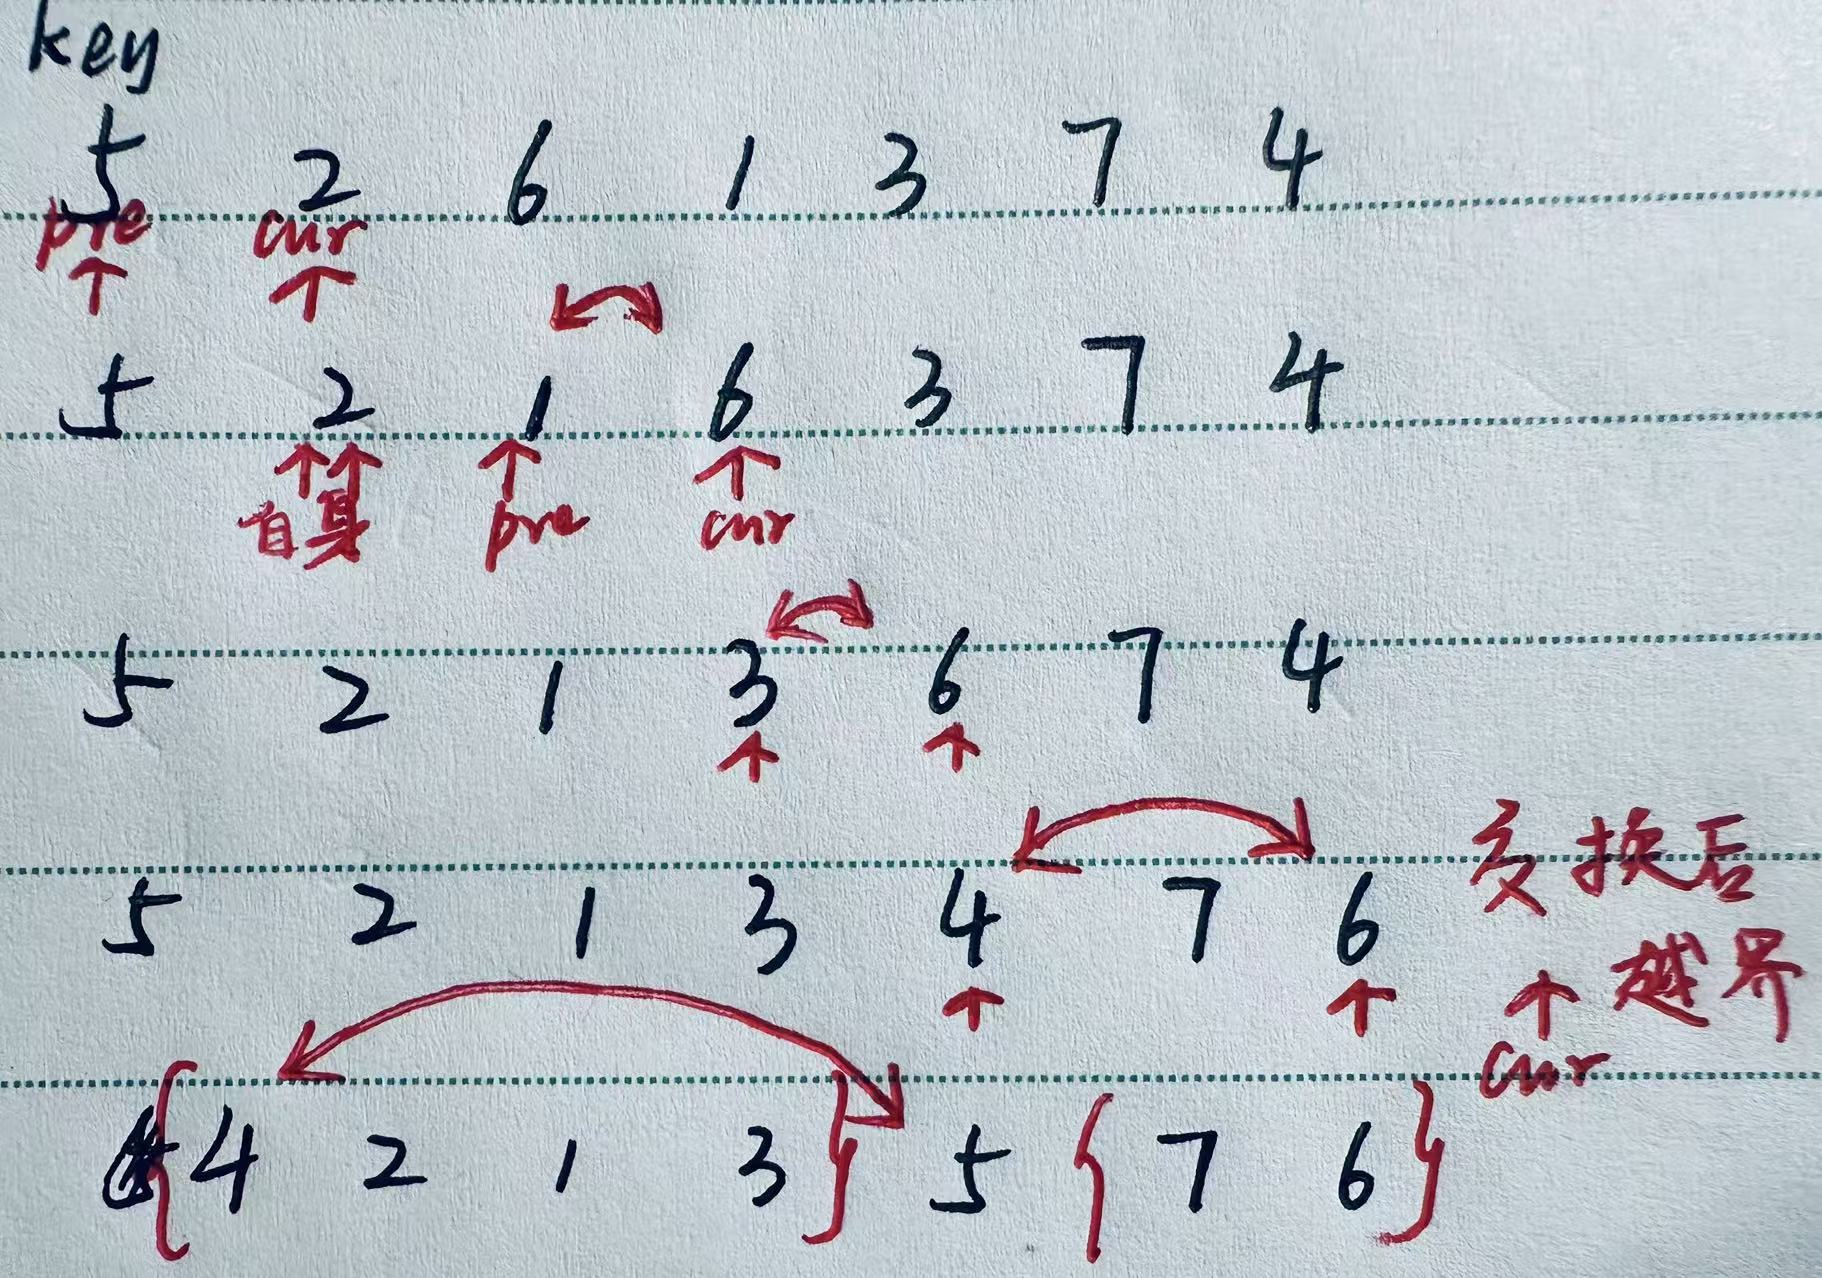 key
5 2 6 1 3 7 4
pre cur
5 2 1 6 3 7 4
自身 pre cur
5 2 1 3 6 7 4
交换后
5 2 1 3 4 7 6
越界
cur
{ 4 2 1 3 } 5 { 7 6 }